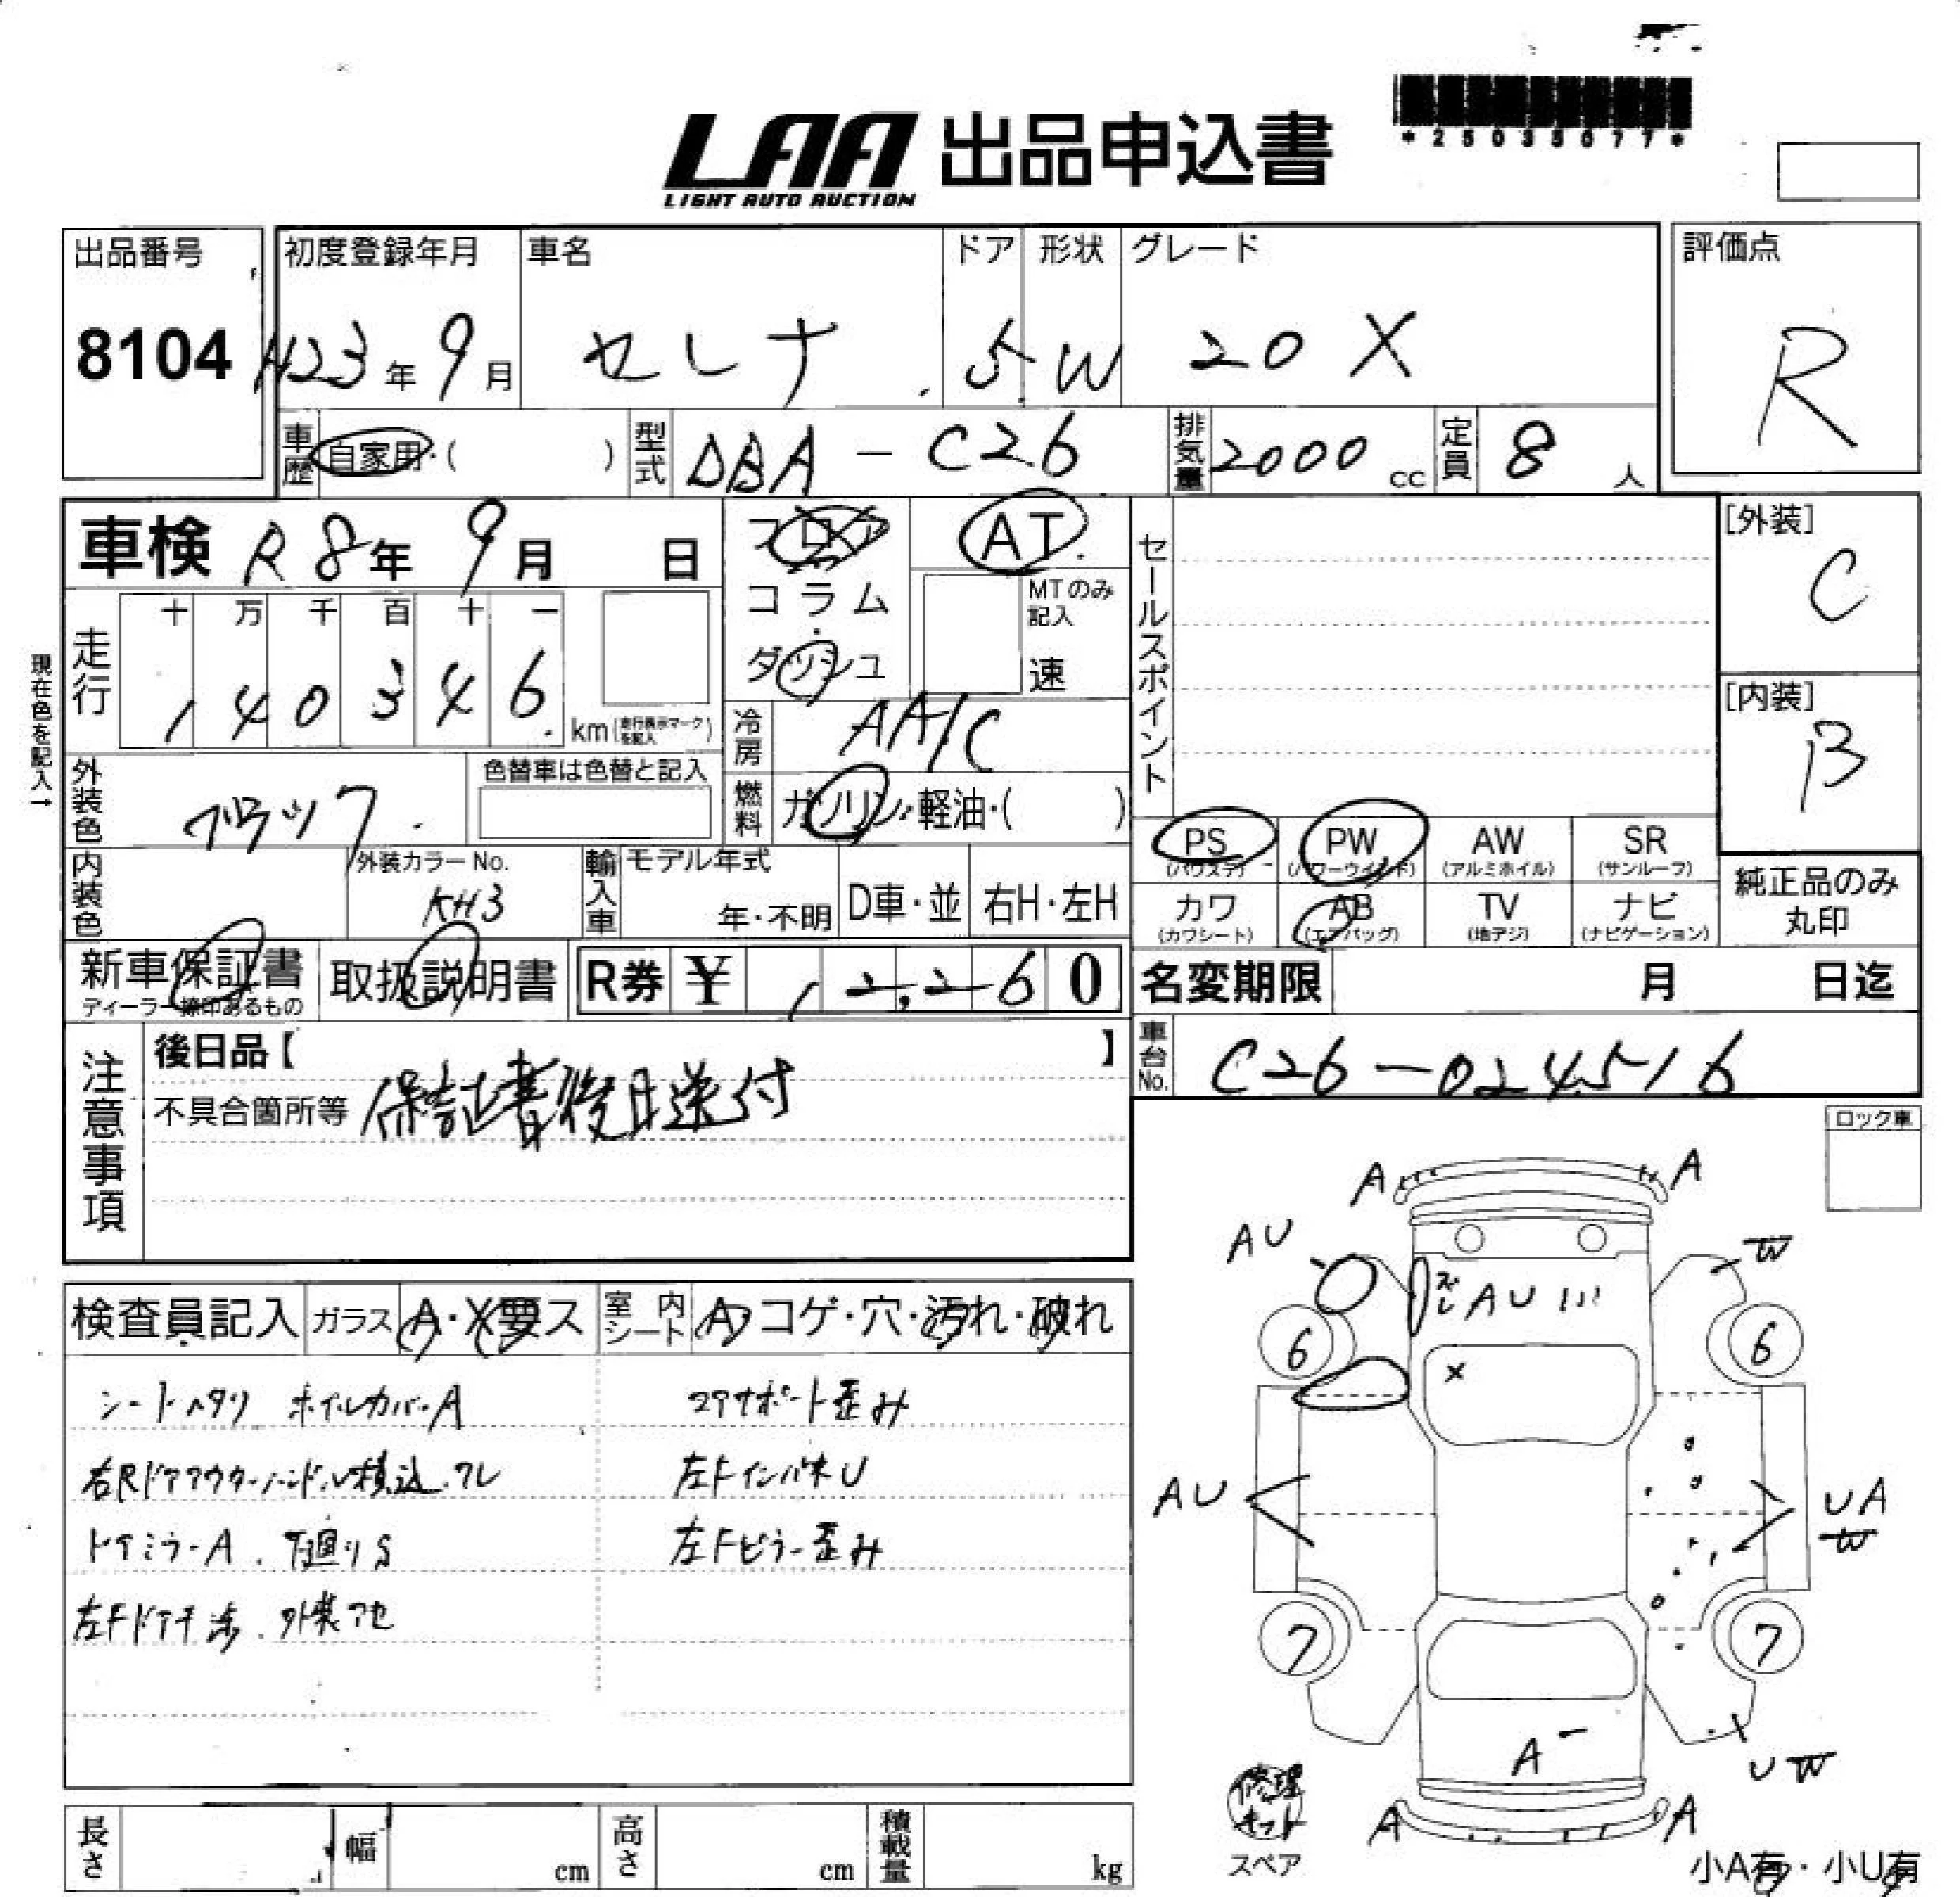 *25035077*
LAA 出品申込書
LIGHT AUTO AUCTION
出品番号
8104
初度登録年月
H23年9月
車名
セレナ
ドア
5
形状
W
グレード
20X
評価点
R
車歴 自家用・( )
型式 DBA-C26
排気量 2000 cc
定員 8 人
車検 R8年9月 日
フロア
コラム
ダッシュ
AT
MTのみ記入
速
セールスポイント
[外装]
C
[内装]
B
現在色を記入→
走行
十 万 千 百 十 一
1 4 0 3 4 6
km(走行表示マークを記入)
冷房 AA/C
燃料 ガソリン・軽油・( )
外装色 ブラック
色替車は色替と記入
内装色
外装カラーNo.
KH3
輸入車
モデル年式
年・不明
D車・並
右H・左H
PS (パワステ)
PW (パワーウインド)
AW (アルミホイル)
SR (サンルーフ)
カワ (カワシート)
AB (エアバッグ)
TV (地デジ)
ナビ (ナビゲーション)
純正品のみ丸印
新車保証書
ディーラー捺印あるもの
取扱説明書
R券 ¥ 12,260
名変期限 月 日迄
車台No. C26-024516
注意事項
後日品【 】
不具合箇所等 保証書後日送付
ロック車
検査員記入
ガラス A・X要ス
室内シート A コゲ・穴・汚れ・破れ
シートヘタリ ホイルカバーA
コアサポート歪み
右Rドアアウターハンドル
左FインパネU
ドアミラーA 下廻りS
左Fピラー歪み
A A
AU
W
ズレ AU
6 6
X
AU
UA
W
7 7
A-
UW
A A
修理キット
スペア
小A有・小U有
長さ
幅 cm
高さ cm
積載量 kg